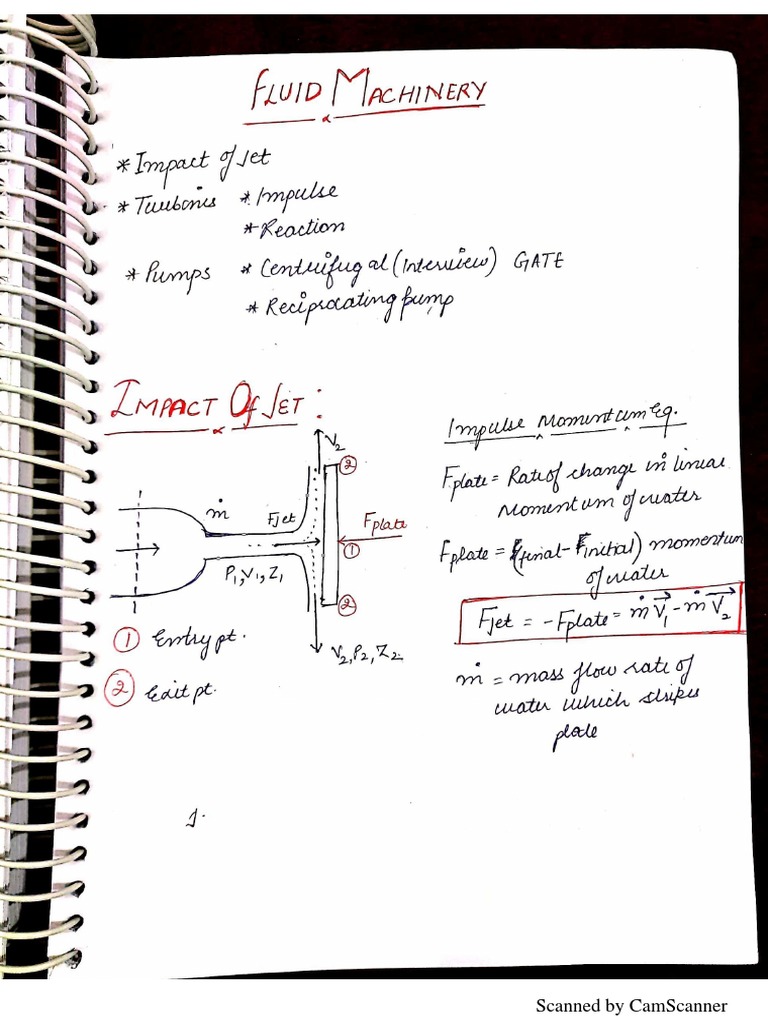 FLUID MACHINERY
* Impact of Jet
* Turbines * Impulse
* Reaction
* Pumps * Centrifugal (Interview) GATE
* Reciprocating pump
IMPACT Of JET :
V2
2
ṁ
Fjet
Fplate
1
P1, V1, Z1
2
V2, P2, Z2
1 Entry pt.
2 Exit pt.
Impulse Momentum Eq.
Fplate = Rate of change in linear
Momentum of water
Fplate = (final - initial) momentum
of water
Fjet = - Fplate = ṁ V1 - ṁ V2
ṁ = mass flow rate of
water which strikes
plate
1.
Scanned by CamScanner